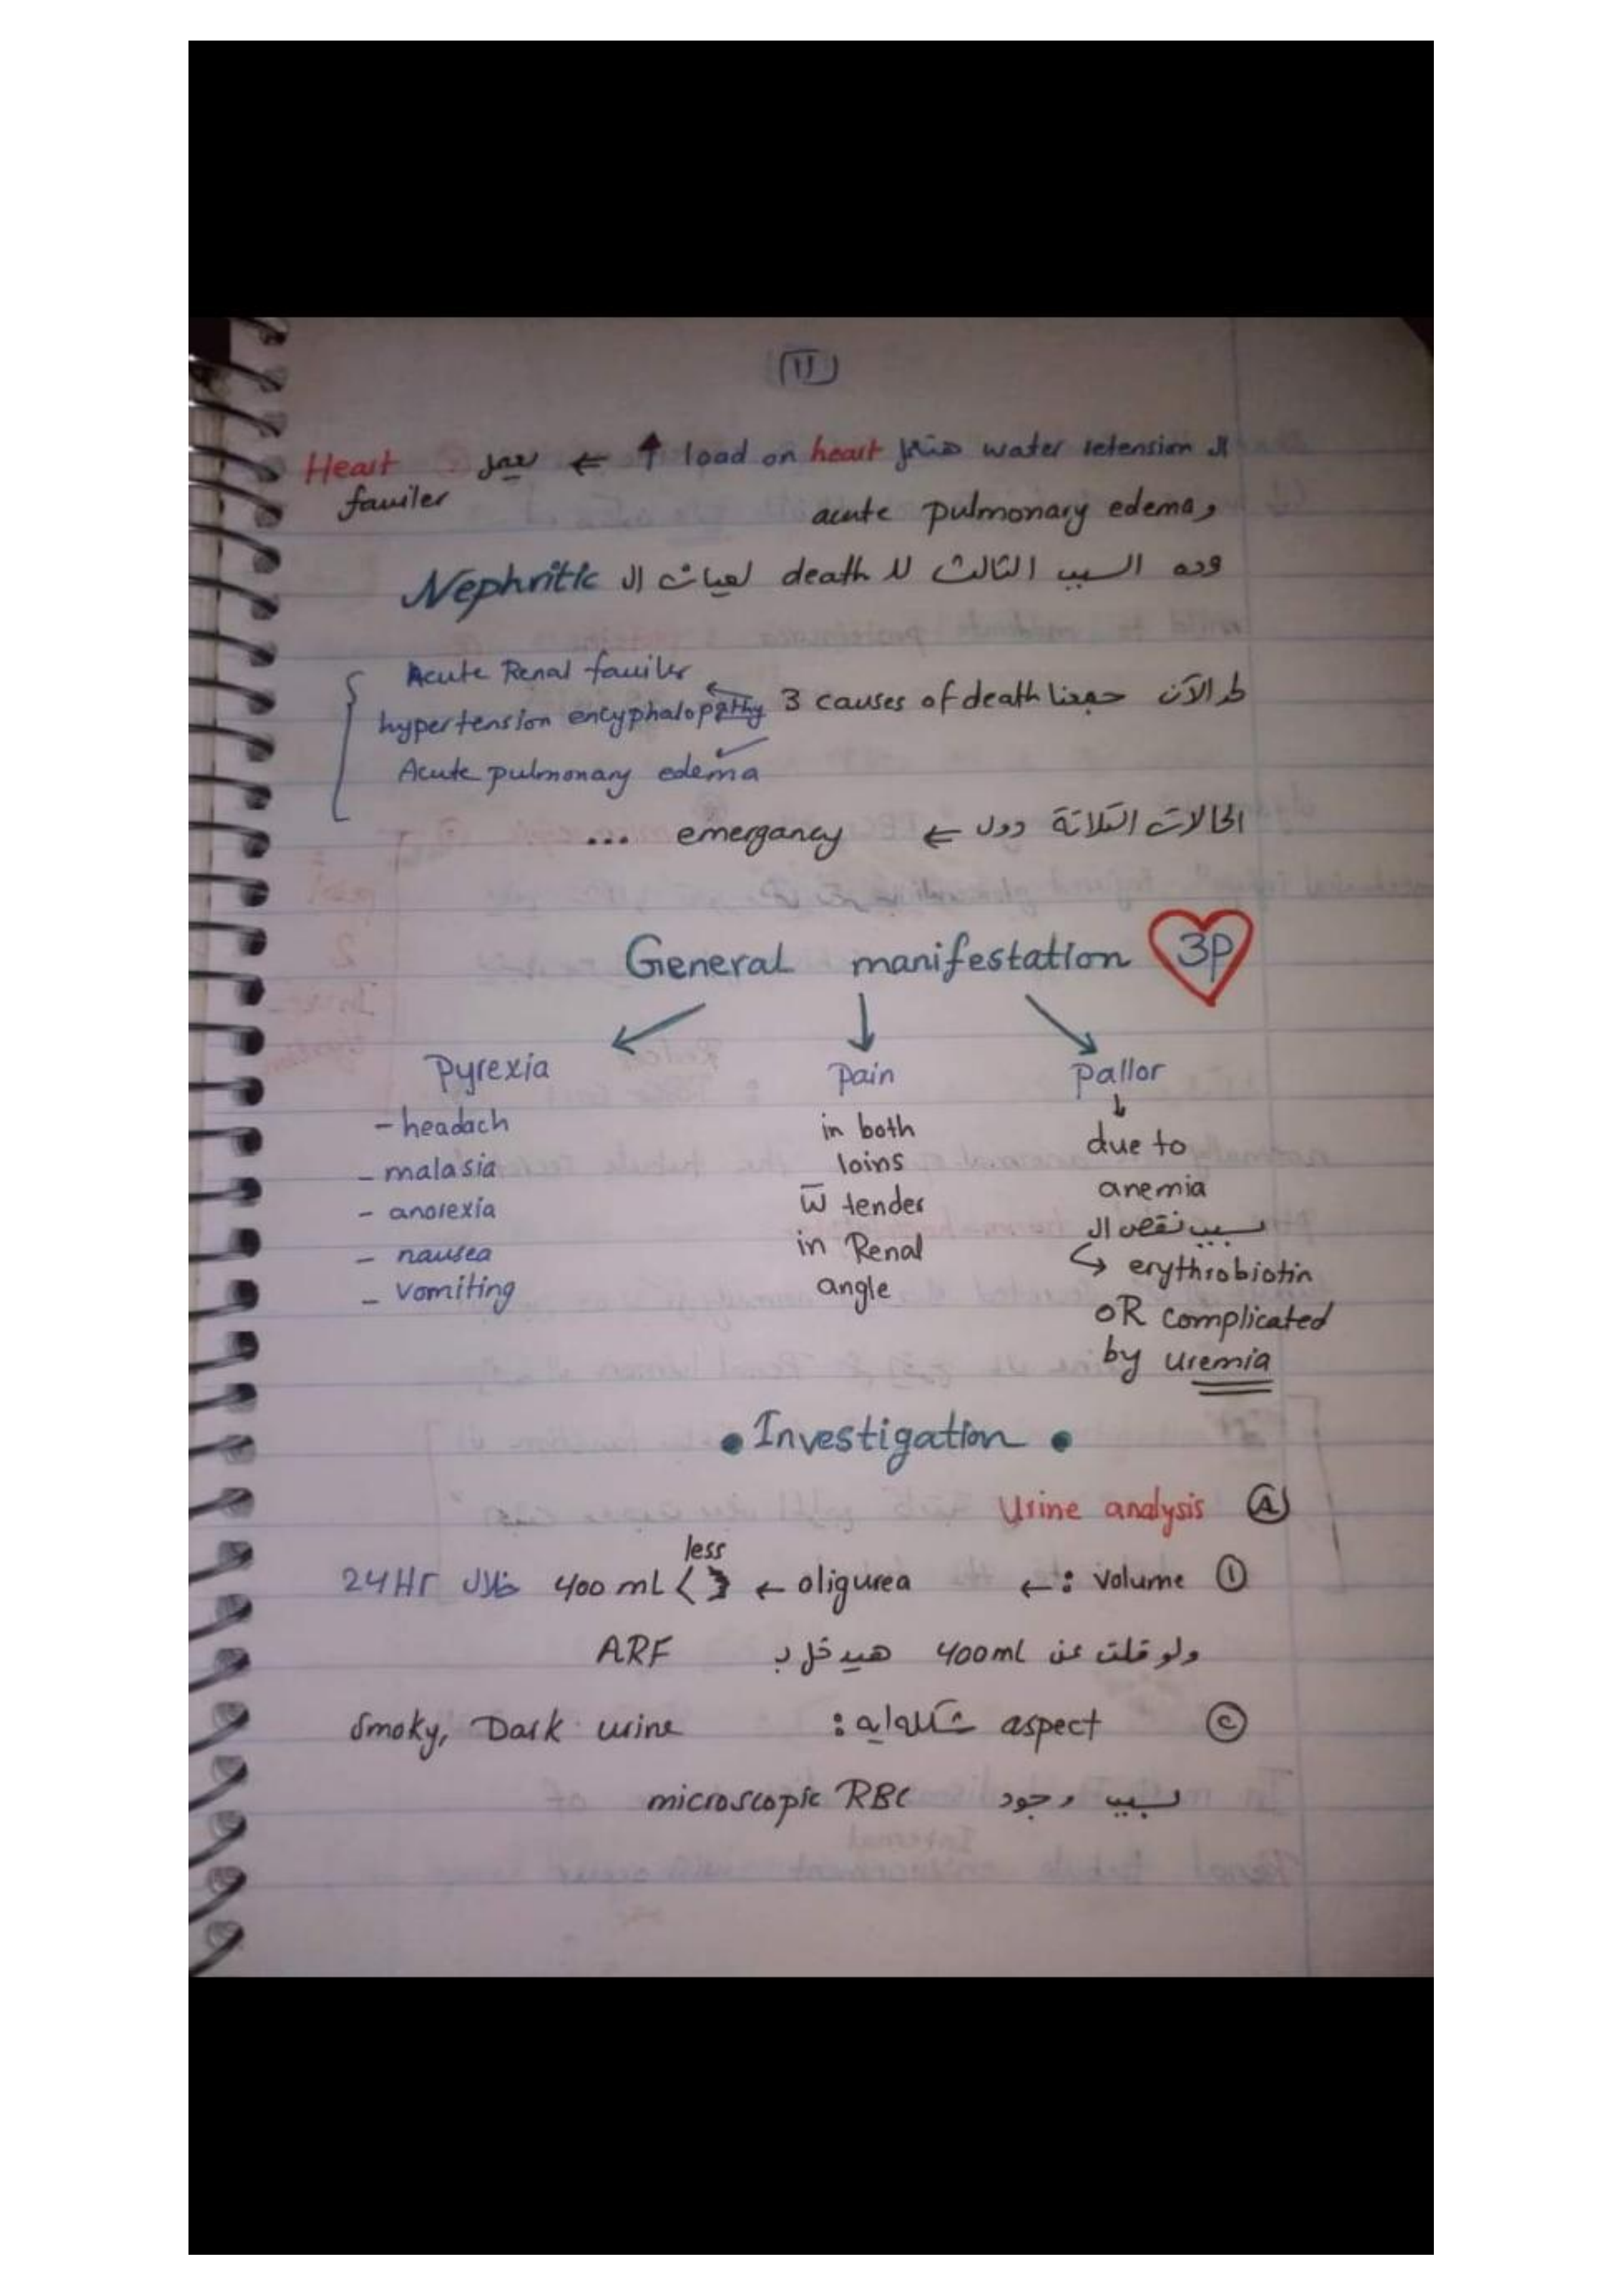 11
ال water retension هتعمل load on heart ↑ ← تعمل Heart
failuer
و acute pulmonary edema
وده السبب التالت لل death لعيانة ال Nephritic
لحد الآن جمعنا 3 causes of death ←
Acute Renal failuer
hypertension encyphalopathy
Acute pulmonary edema
الحالات التلاتة دول ← emergancy ...
General manifestation 3P
Pyrexia
- headach
- malasia
- anorexia
- nausea
- vomiting
Pain
in both
loins
w̅ tender
in Renal
angle
Pallor
↓
due to
anemia
بسبب نقص ال
↳ erythrobiotin
OR complicated
by uremia
• Investigation •
Ⓐ Urine analysis
① volume : ← oligurea ← less < 400 mL خلال 24Hr
ولو قلت عن 400mL هيدخل ب ARF
② aspect شكله ايه : Smoky, Dark urine
بسبب وجود microscopic RBC